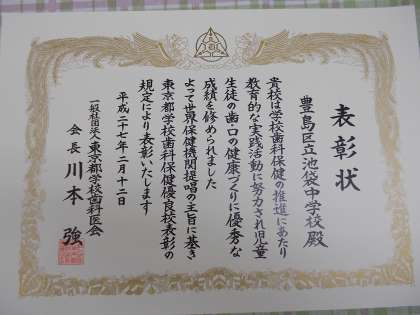 表彰状
豊島区立池袋中学校殿
貴校は学校歯科保健の推進にあたり
教育的な実践活動に努力され児童
生徒の歯・口の健康づくりに優秀な
成績を修められました
よって世界保健機関提唱の主旨に基き
東京都学校歯科保健優良校表彰の
規定により表彰いたします
平成二十七年二月十二日
一般社団法人東京都学校歯科医会
会長 川本 強